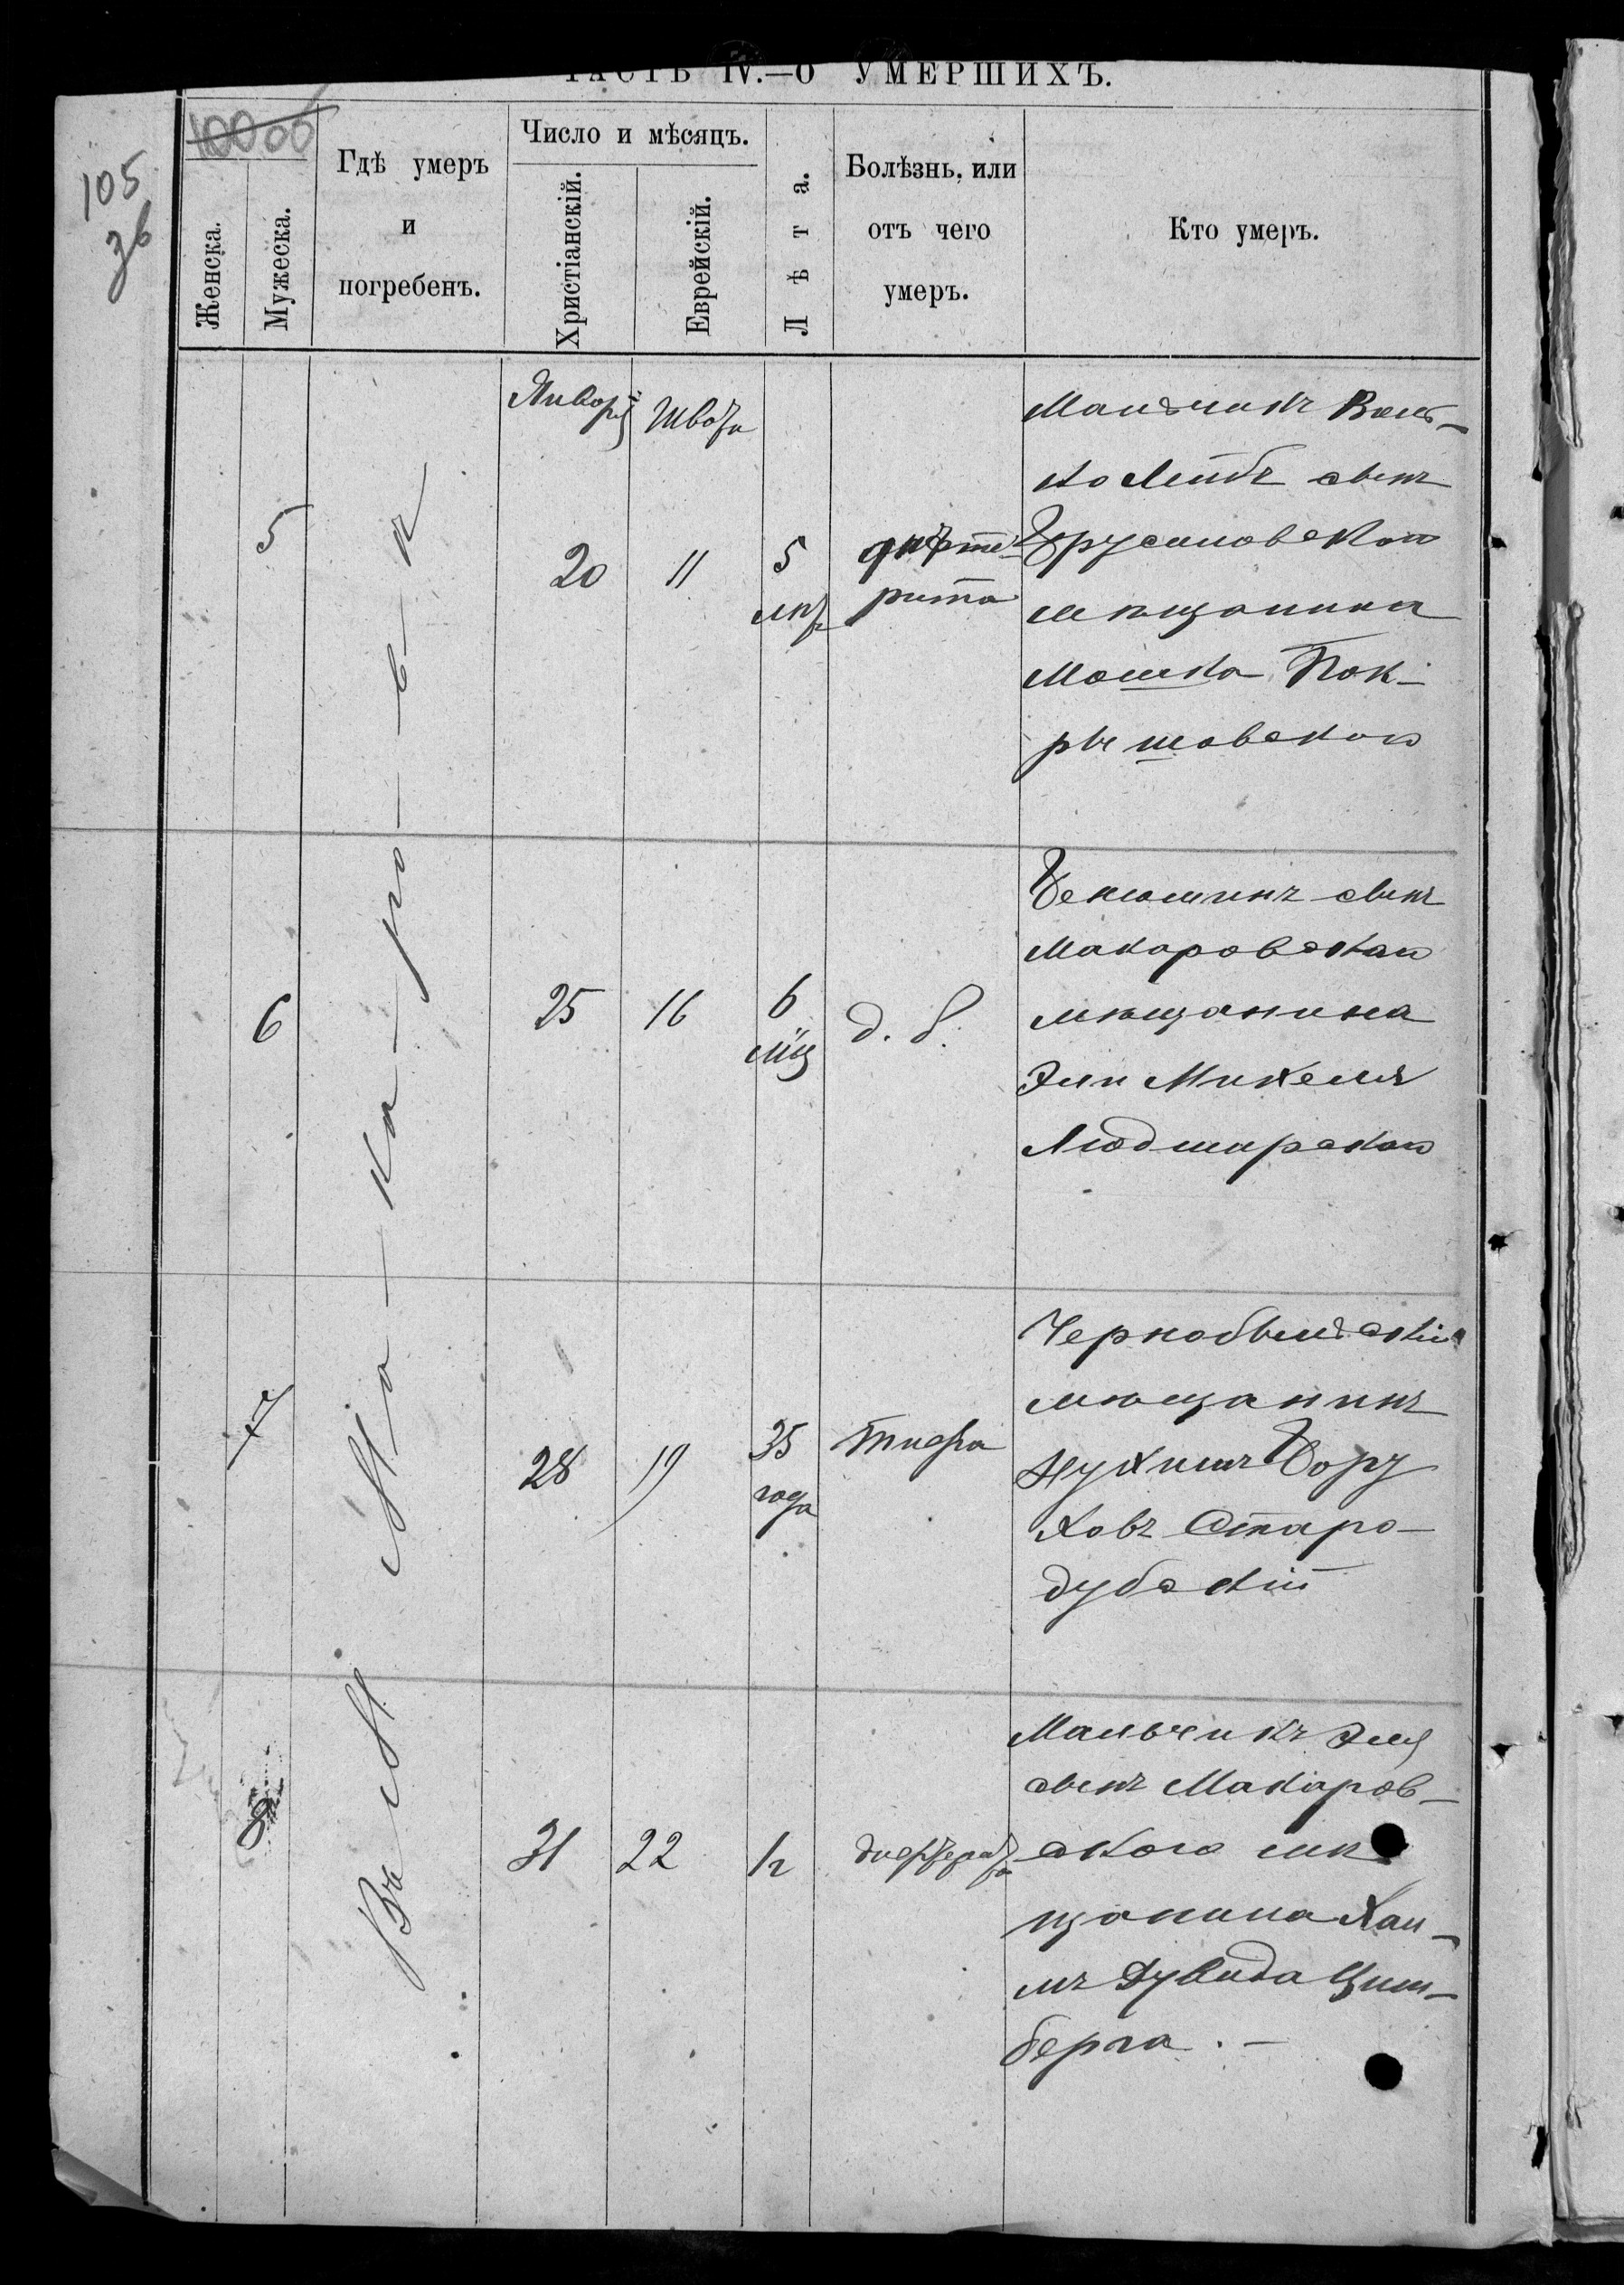 ЧАСТЬ IV.—О УМЕРШИХЪ.
105
36
Женска.
Мужеска.
Гдѣ умеръ
и
погребенъ.
Число и мѣсяцъ.
Христіанскій.
Еврейскій.
Лѣта.
Болѣзнь, или
отъ чего
умеръ.
Кто умеръ.
Въ М. Ма-ка-ро-в-ѣ
Январь
Швата
5
20
11
5
лѣт
дифте-
рита
Мальчикъ Воль-
ко Лейбъ сынъ
Брусиловскаго
мѣщанина
Мошка Пок-
рышовскаго
6
25
16
6
мѣц
д. б.
Беньоминъ сынъ
Макаровскаго
мѣщанина
Эли Михеля
Людмирскаго
7
28
19
35
года
Тифа
Чернобыльскій
мѣщанинъ
Нухимъ Бору
ховъ Старо-
дубскій
8
31
22
½
дифтерита
Мальчикъ Эля
сынъ Макаров-
скаго мѣ
щанина Хаи-
мъ Дувида Цим-
берга. —